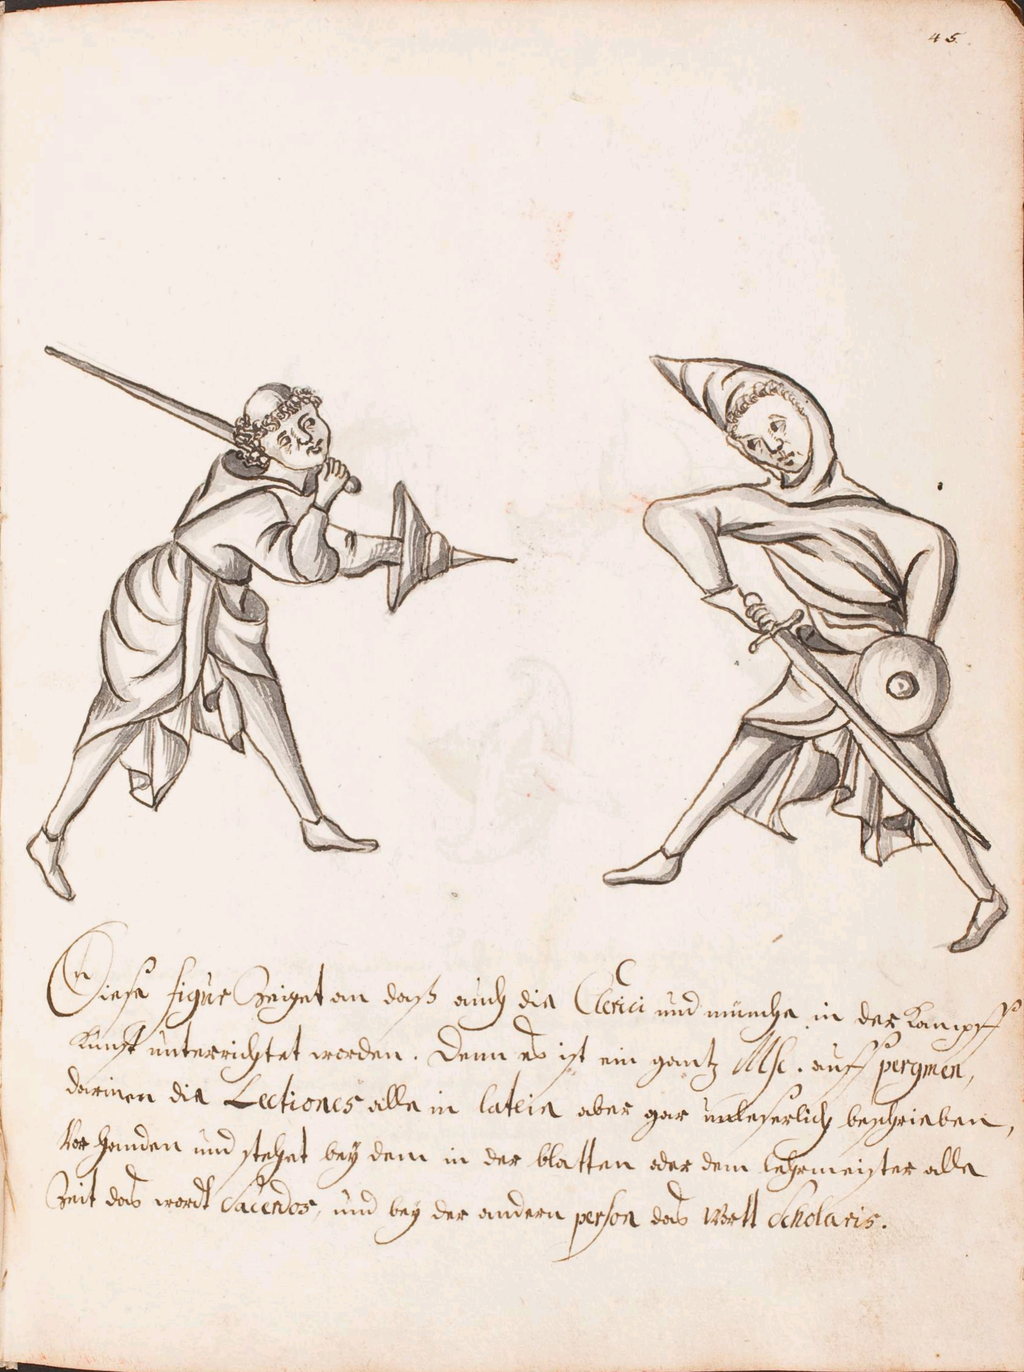 45.
Diese figur Zeiget an daß auch die Clerici und münche in der Kampff
Kunst unterrichtet worden. Denn es ist ein gantz Msc. auff pergmen,
darinen die Lectiones alle in latein aber gar unleserlich beschrieben,
Vorhanden und stehet bey dem in der blatten oder dem lehrmeister alle
Zeit das wordt Sacerdos, und bey der andern person das Wortt Scholaris.